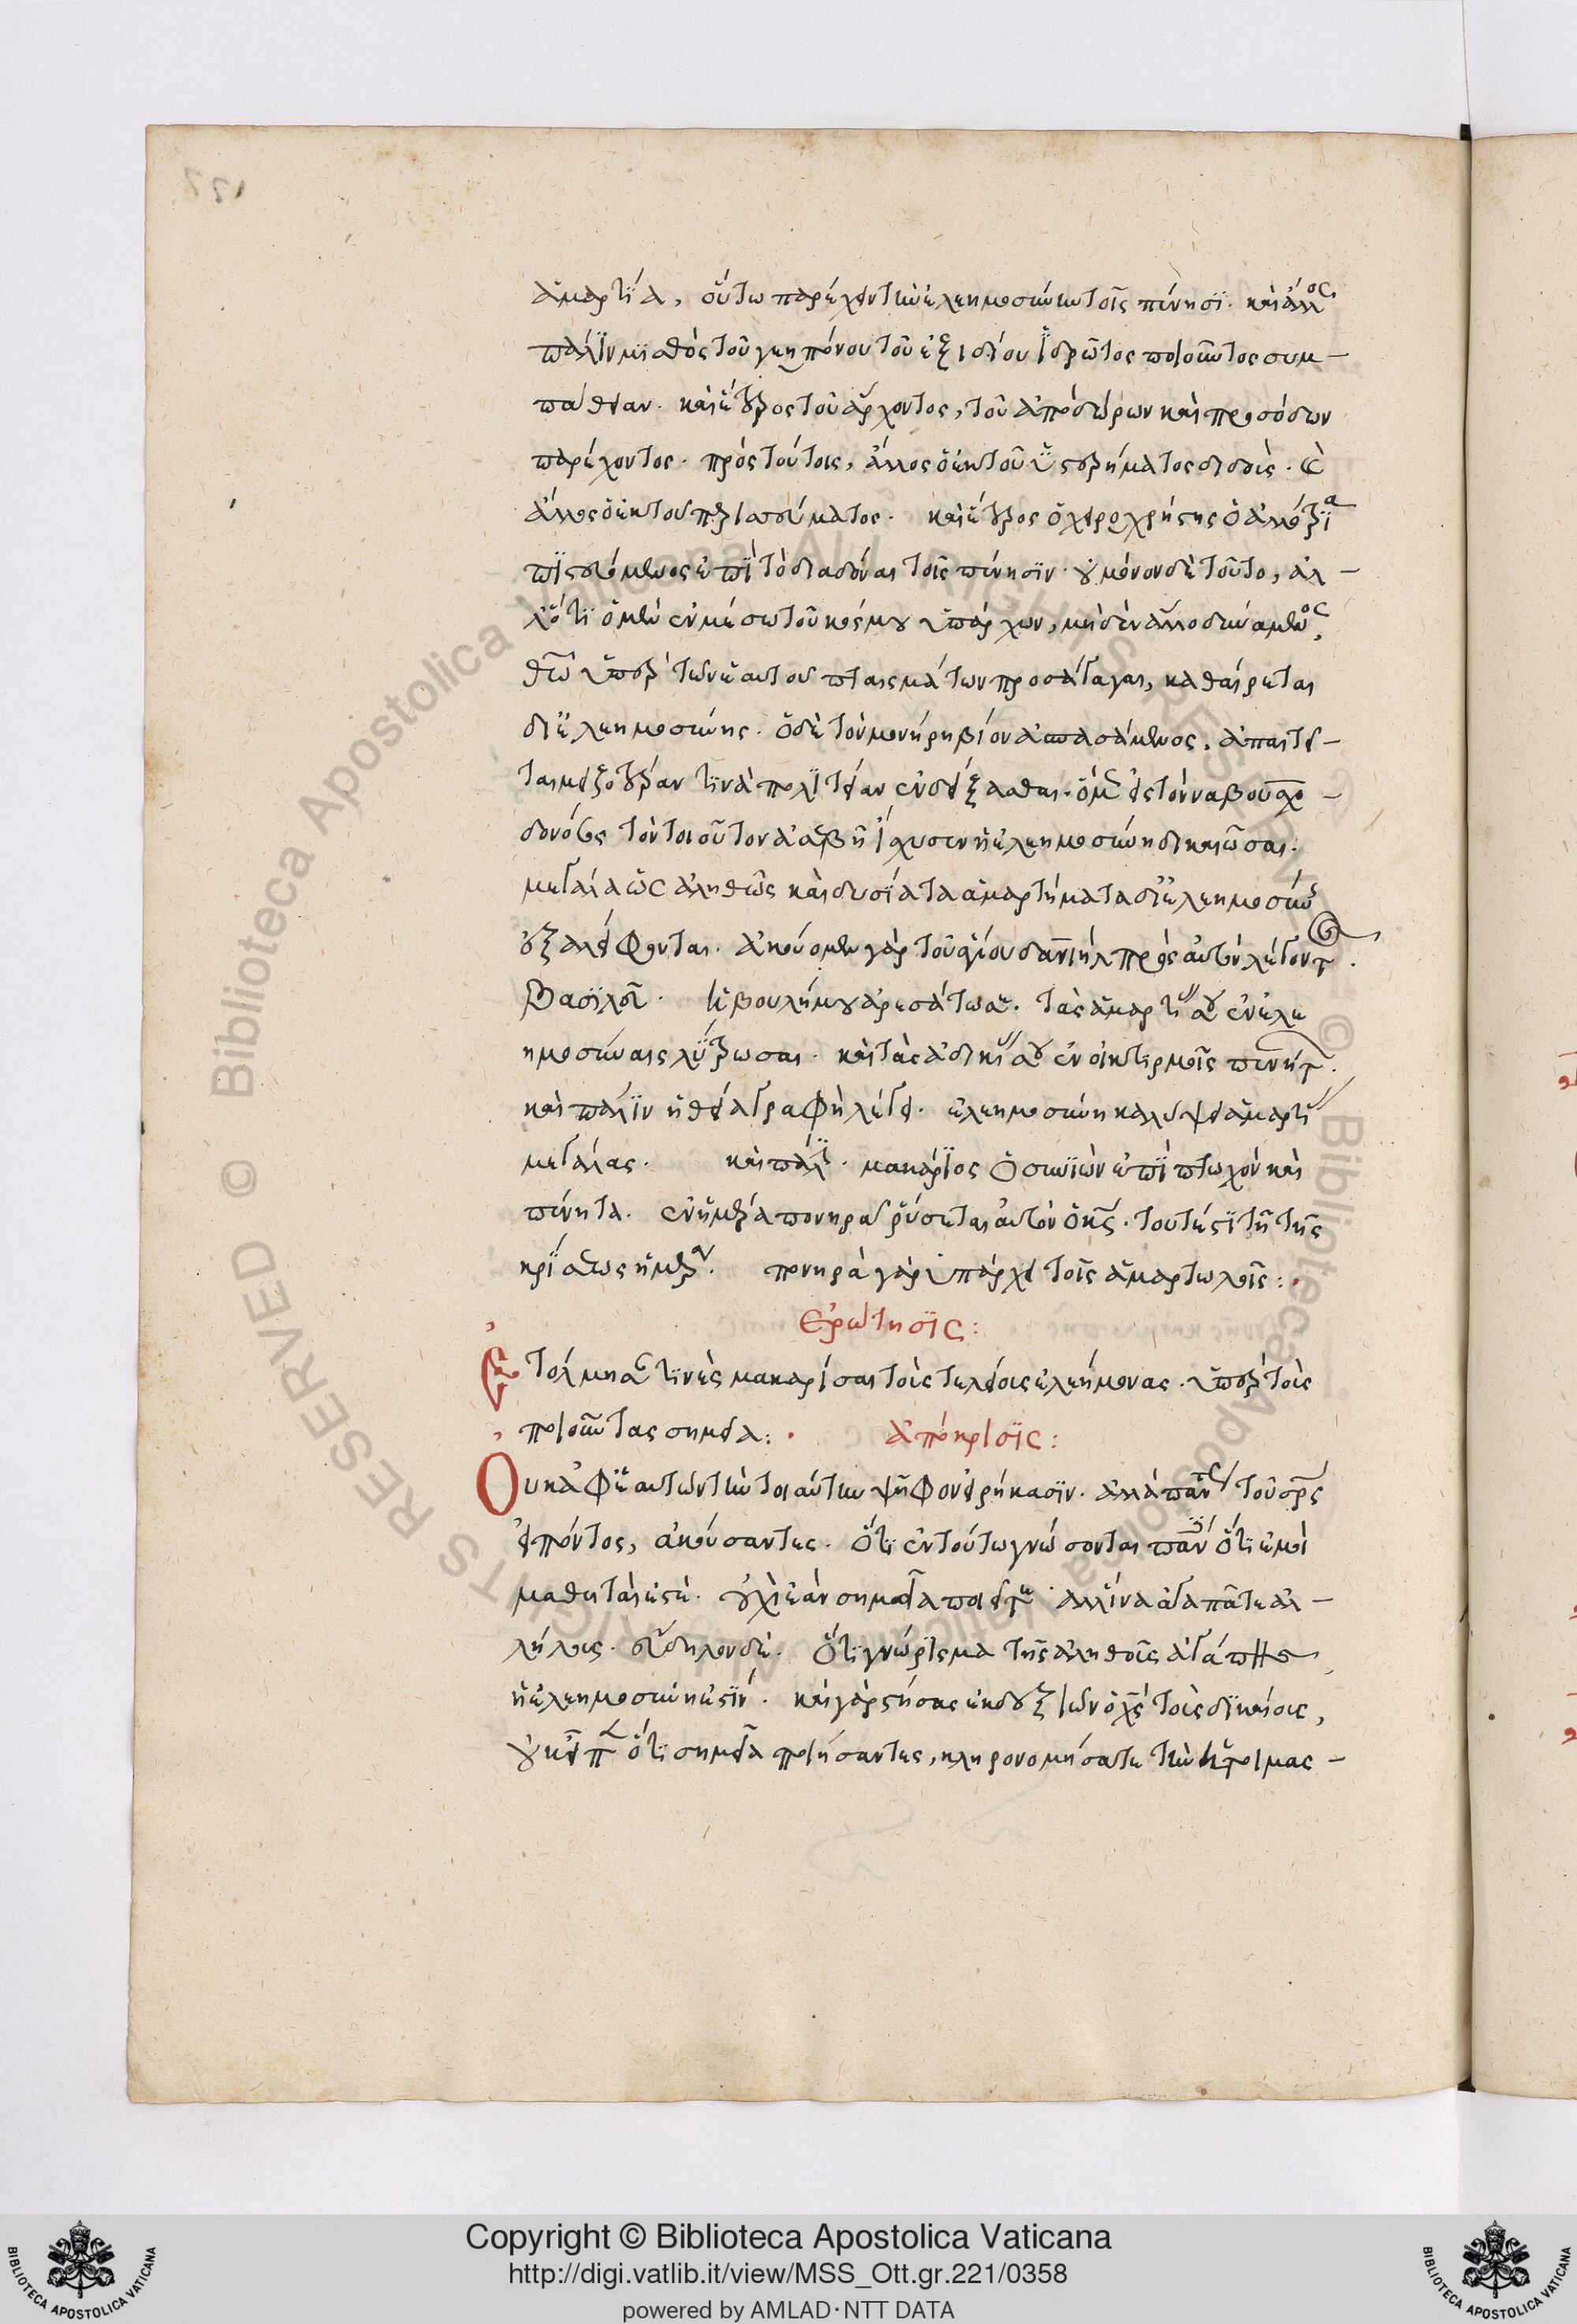 ἁμαρτία, οὕτω παρέχειν τὴν ἐλεημοσύνην τοῖς πένησι. καὶ ἄλλος
πάλιν μισθὸς τοῦ γεηπόνου τοῦ ἐξ ἰδίου ἱδρῶτος ποιοῦντος συμ-
πάθειαν. καὶ ἕτερος τοῦ ἄρχοντος, τοῦ ἀπὸ δώρων καὶ προσόδων
παρέχοντος. πρὸς τούτοις, ἄλλος ὁ ἐκ τοῦ ὑστερήματος διδοὺς. καὶ
ἄλλος ὁ ἐκ τοῦ περισσεύματος. καὶ ἕτερος ὁ χειροχρήστης ὁ ἀλλότρια
πιστευόμενος ἐπὶ τὸ διαδοῦναι τοῖς πένησιν. οὐ μόνον δὲ τοῦτο, ἀλ-
λ' ὅτι ὁ μὲν ἐν μέσω τοῦ κόσμου ὑπάρχων, μηδὲν ἄλλο δυνάμενος
θεῶ ὑπὲρ τῶν ἑαυτοῦ πταισμάτων προσάγαγαι, καθαίρεται
δι' ἐλεημοσύνης. ὁ δὲ τὸν μονήρη βίον ἀσπασάμενος, ἀπαιτεῖ-
ται μειζοτέραν τινὰ πολιτείαν ἐνδείξασθαι. ὅμως εἰς τὸν ναβουχο-
δονόσορ τὸν τοιοῦτον ἀσεβῆ ἴσχυσεν ἡ ἐλεημοσύνη δικαιῶσαι.
μεγάλα ὡς ἀληθῶς καὶ δυσίατα ἁμαρτήματα δι' ἐλεημοσύνης
ἐξαλείφονται. ἀκούομεν γὰρ τοῦ ἁγίου δανιὴλ πρὸς αὐτὸν λέγοντος.
Βασιλεῦ. ἡ βουλή μου ἀρεσάτω σε. τὰς ἁμαρτίας σου ἐν ἐλε
ημοσύναις λύτρωσαι. καὶ τὰς ἀδικίας σου ἐν οἰκτιρμοῖς πενήτων.
καὶ πάλιν ἡ θεία γραφὴ λέγει. ἐλεημοσύνη καλύψει ἁμαρτίας
μεγάλας. καὶ πάλιν. μακάριος ὁ συνιὼν ἐπὶ πτωχὸν καὶ
πένητα. ἐν ἡμέρα πονηρᾶ ῥύσεται αὐτὸν ὁ κύριος. τουτέστι τῆ τῆς
κρίσεως ἡμέρα. πονηρὰ γὰρ ὑπάρχει τοῖς ἁμαρτωλοῖς:.
Ἐρώτησις:
Ἐτόλμησάν τινὲς μακαρίσαι τοὺς τελείους ἐλεήμονας. ὑπὲρ τοὺς
ποιοῦντας σημεῖα:. ἀπόκρισις:
Οὐκ ἀφ' ἑαυτῶν τὴν τοιαύτην ψῆφον εἰρήκασιν. ἀλλὰ πάντως τοῦ σωτῆρος
εἰπόντος, ἀκούσαντες. ὅτι ἐν τούτω γνώσονται πάντες ὅτι ἐμοὶ
μαθηταὶ ἐστὲ. οὐχὶ ἐὰν σημεῖα ποιεῖτε. ἀλλ' ἵνα ἀγαπᾶτε ἀλ-
λήλους. εὔδηλον δὲ. ὅτι γνώρισμα τῆς ἀληθοῦς ἀγάπης,
ἡ ἐλεημοσύνη ἐστὶν. καὶ γὰρ στήσας ἐκ δεξιῶν ὁ χριστὸς τοὺς δικαίους,
οὐκ εἶπεν ὅτι σημεῖα ποιήσαντες, κληρονομήσατε τὴν ἡτοιμασ-